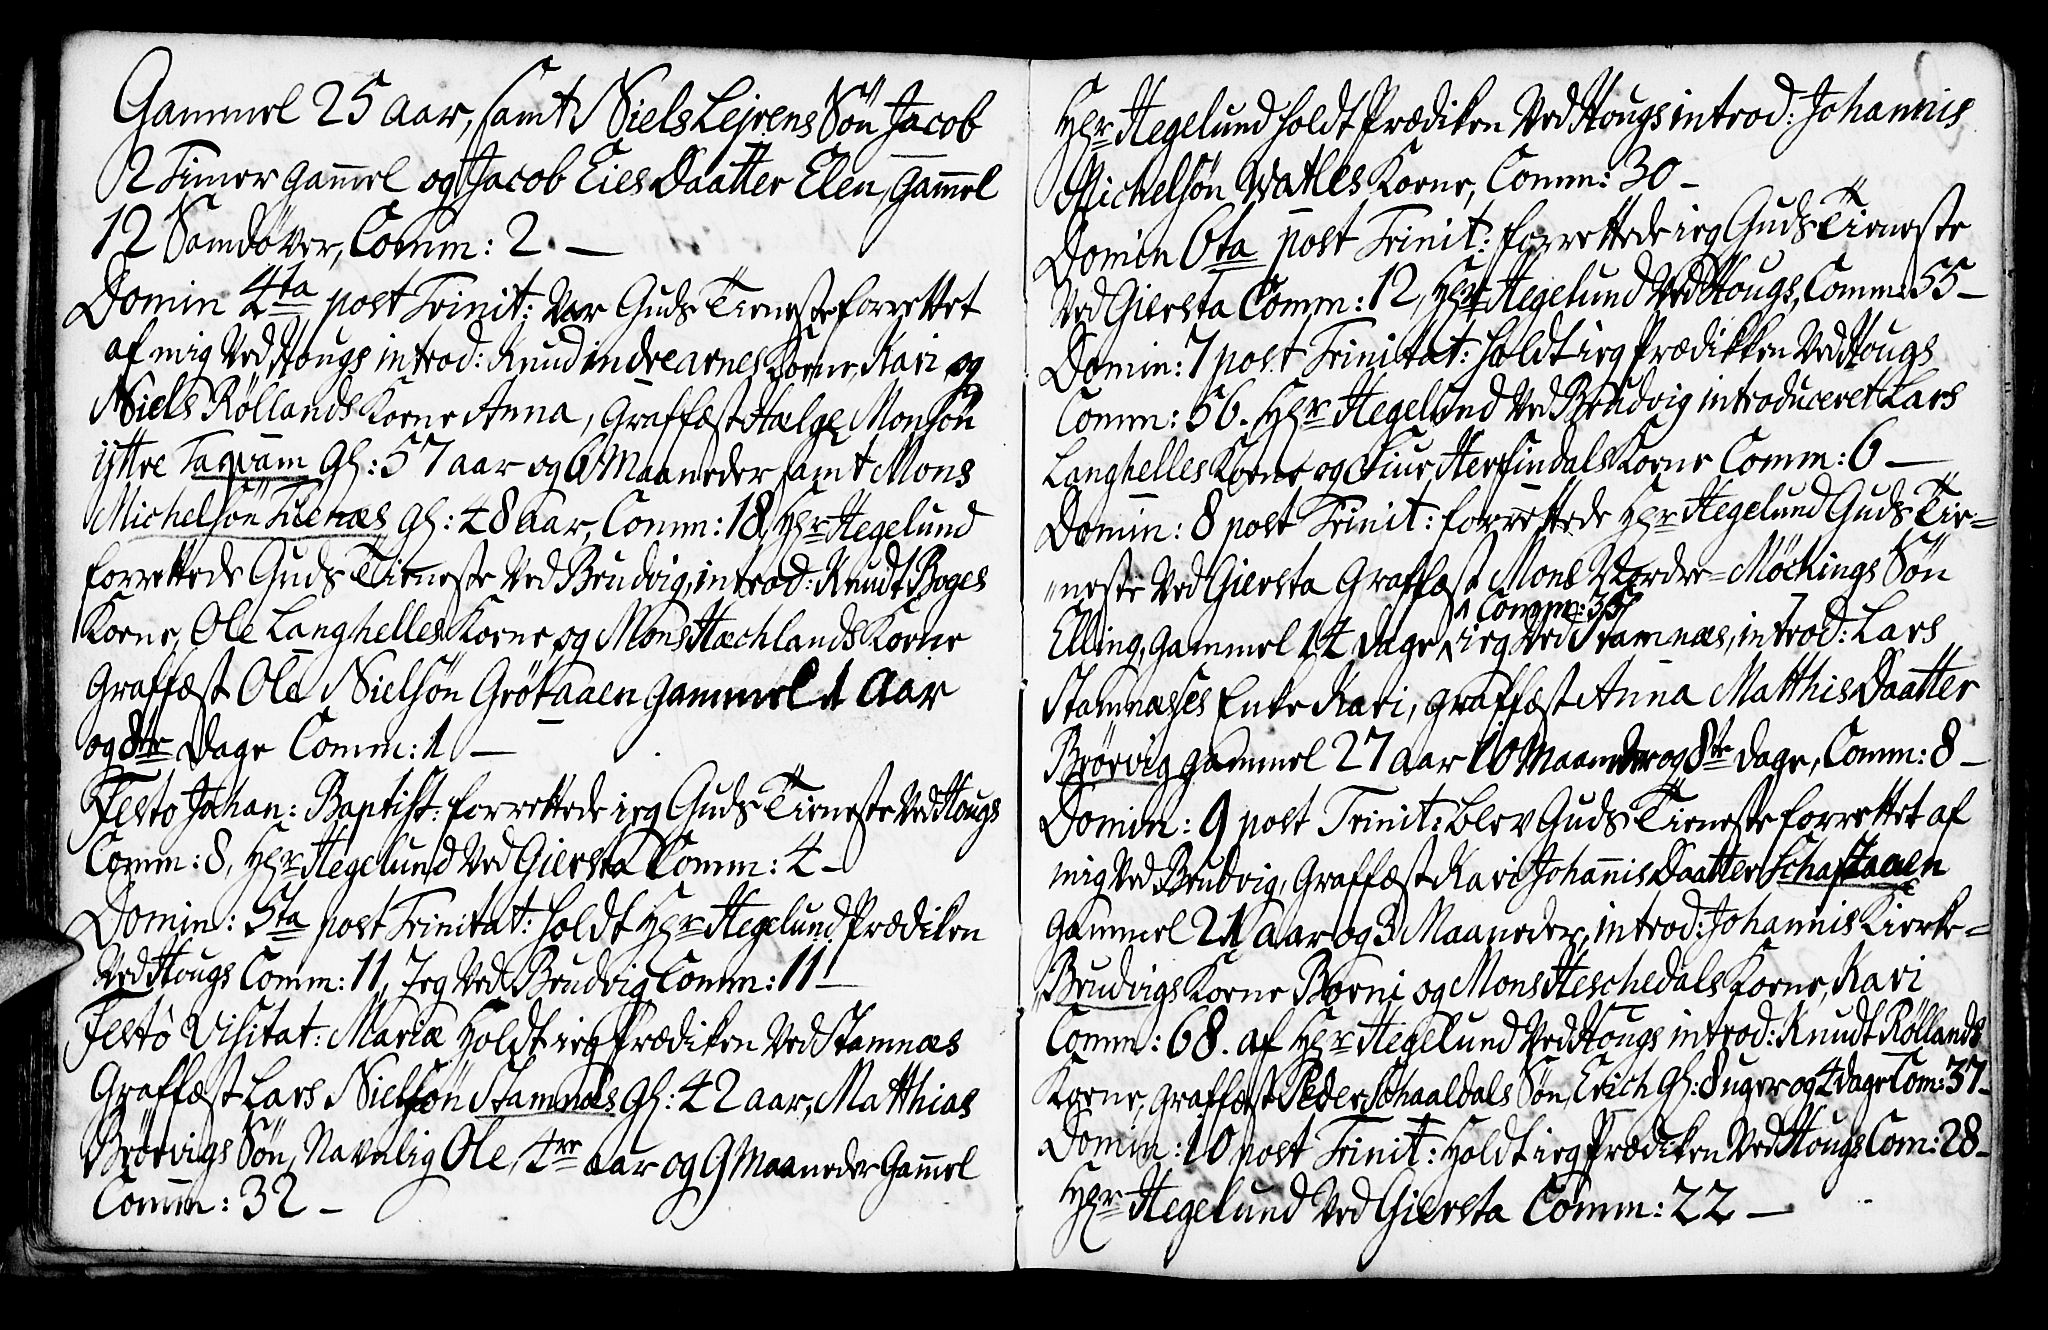 Gammel 25 aar, samt Niels Lejrens Sön Jacob
2 Timer gam̄el og Jacob Eies Daatter Elen, gam̄el
12 Samdöver, Comm: 2. —
Domin 4ta post Trinit: var Guds Tieneste forrettet
af mig ved Hougs introd: Knud indre arnes Kone, Kari og
Niels Röllands Kone Anna, Graffæst Hælge Monsön
ÿttre Taqvam Gl: 57 aar og 6 Maaneder samt Mons
Michelsön Fuenæs, Gl: 48 aar, Comm: 18, Hr Hegelund
forrettede Guds Tieneste ved Brudvig, introd: Knudt Boges
Kone, Ole Langhelles Kone og Mons Hæchlands Kone
Graffæst Ole Nielsön Grötaaen gammel 1 aar
og 8te Dage Comm: 1 —
Festo Johan: Baptist: forrettede ieg Guds Tieneste ved Hougs
Comm: 8, Hr Hegelund ved Giersta Comm: 4 –
Domin: 5ta post Trinitat: holdt Hr Hegelund Prædiken
ved Hougs Comm: 11, Jeg ved Brudvig Comm: 11 –
Festo Visitat: Mariæ Holdt ieg Prædiken ved Stamnæs
Graffæst Lars Nielsön Stamnæs Gl: 42 aar, Matthias
Brörvigs Sön, Navnlig Ole, 4re aar og 9 Maaneder Gam̄el
Com̄m: 32 –
Hr Hegelund holdt Prædiken ved Hougs introd: Johannis
Michelsön Watles Kone, Comm: 30 –
Domin 6ta post Trinit: forrettede ieg Guds Tieneste
ved Giersta Comm: 12, Hr Hegelund ved Hougs, Comm: 55 –
Domin: 7 post Trinitat: holdt ieg Prædikken ved Hougs
Comm: 56. Hr Hegelund ved Brudvig introduceret Lars
Langhelles Kone og Siur Herfindals Kone Comm: 6 —
Domin: 8 post Trinit: forrettede Hr Hegelund Guds Tie=
"neste ved Giersta Graffæst Mons Nordre=Möchings Sön
Comm: 35
Elling, gammel 14 dage, ieg ved Stamnæs, introd: Lars
Stamnæses Enke Kari, graffæst Anna Matthis Daatter
Brörvig gammel 27 aar 10 Maaneder og 8te dage, Comm: 8 –
Domin: 9 post Trinit: blev Guds Tieneste forrettet af
mig ved Brudvig, Graffæst Kari Johan̄is Daatter Schaftaaen
gammel 21 aar og 3 Maaneder, introd: Johannis Kierke=
"Brudvigs Kone Borni og Mons Heschedals Kone, Kari
Comm: 68. af Hr Hegelund ved Hougs introd: Knudt Röllands
Kone, graffæst Peder Schaaldals Sön, Erich Gl: 8 uger og 4 dage Com: 37 –
Domin: 10 post Trinit: Holdt ieg Prædiken ved Hougs Com: 28 –
Hr Hegelund ved Giersta Comm: 22 —